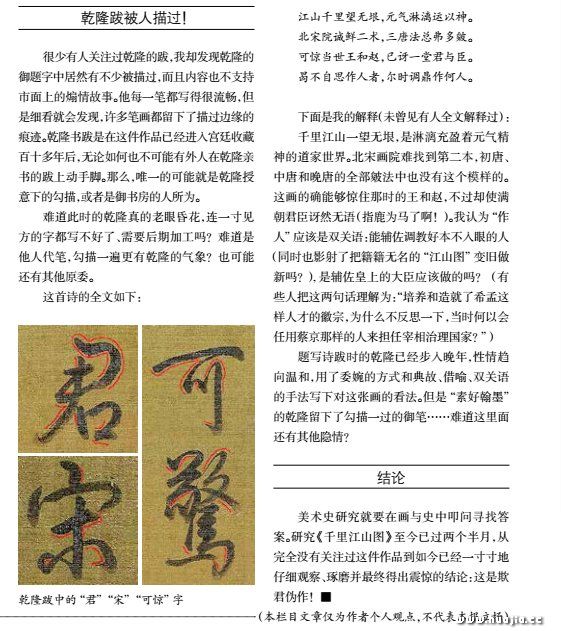 乾隆跋被人描过！
很少有人关注过乾隆的跋，我却发现乾隆的
御题字中居然有不少被描过，而且内容也不支持
市面上的煽情故事。他每一笔都写得很流畅，但
是细看就会发现，许多笔画都留下了描过边缘的
痕迹。乾隆书跋是在这件作品已经进入宫廷收藏
百十多年后，无论如何也不可能有外人在乾隆亲
书的跋上动手脚。那么，唯一的可能就是乾隆授
意下的勾描，或者是御书房的人所为。
难道此时的乾隆真的老眼昏花，连一寸见
方的字都写不好了、需要后期加工吗？难道是
他人代笔，勾描一遍更有乾隆的气象？也可能
还有其他原委。
这首诗的全文如下：
君
宋
可
驚
乾隆跋中的“君”“宋”“可惊”字
江山千里望无垠，元气淋漓运以神。
北宋院诚鲜二本，三唐法总弗多皴。
可惊当世王和赵，已讶一堂君与臣。
曷不自思作人者，尔时调鼎作何人。
下面是我的解释（未曾见有人全文解释过）：
千里江山一望无垠，是淋漓充盈着元气精
神的道家世界。北宋画院难找到第二本，初唐、
中唐和晚唐的全部皴法中也没有这个模样的。
这画的确能够惊住那时的王和赵，不过却使满
朝君臣讶然无语（指鹿为马了啊！）。我认为“作
人”应该是双关语：能辅佐调教好本不入眼的人
（同时也影射了把籍籍无名的“江山图”变旧做
新吗？），是辅佐皇上的大臣应该做的吗？（有
些人把这两句话理解为：“培养和造就了希孟这
样人才的徽宗，为什么不反思一下，当时何以会
任用蔡京那样的人来担任宰相治理国家？”）
题写诗跋时的乾隆已经步入晚年，性情趋
向温和，用了委婉的方式和典故、借喻、双关语
的手法写下对这张画的看法。但是“素好翰墨”
的乾隆留下了勾描一过的御笔……难道这里面
还有其他隐情？
结论
美术史研究就要在画与史中叩问寻找答
案。研究《千里江山图》至今已过两个半月，从
完全没有关注过这件作品到如今已经一寸寸地
仔细观察、琢磨并最终得出震惊的结论：这是欺
君伪作！■
（本栏目文章仅为作者个人观点，不代表本报立场）